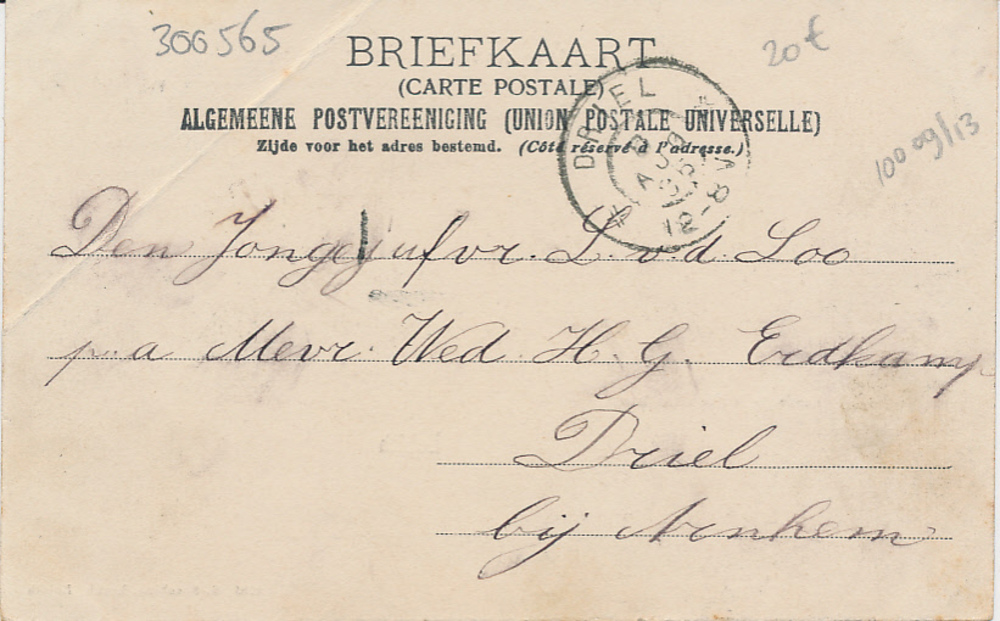 300565
20€
BRIEFKAART
(CARTE POSTALE)
ALGEMEENE POSTVEREENIGING (UNION POSTALE UNIVERSELLE)
Zijde voor het adres bestemd. (Côté réservé à l'adresse.)
10009/13
DRIEL
AUG
12-8
Den Jongejufvr. L. v.d. Loo
p.a Mevr. Wed. H. G. Erdkamp
Driel
bij Arnhem